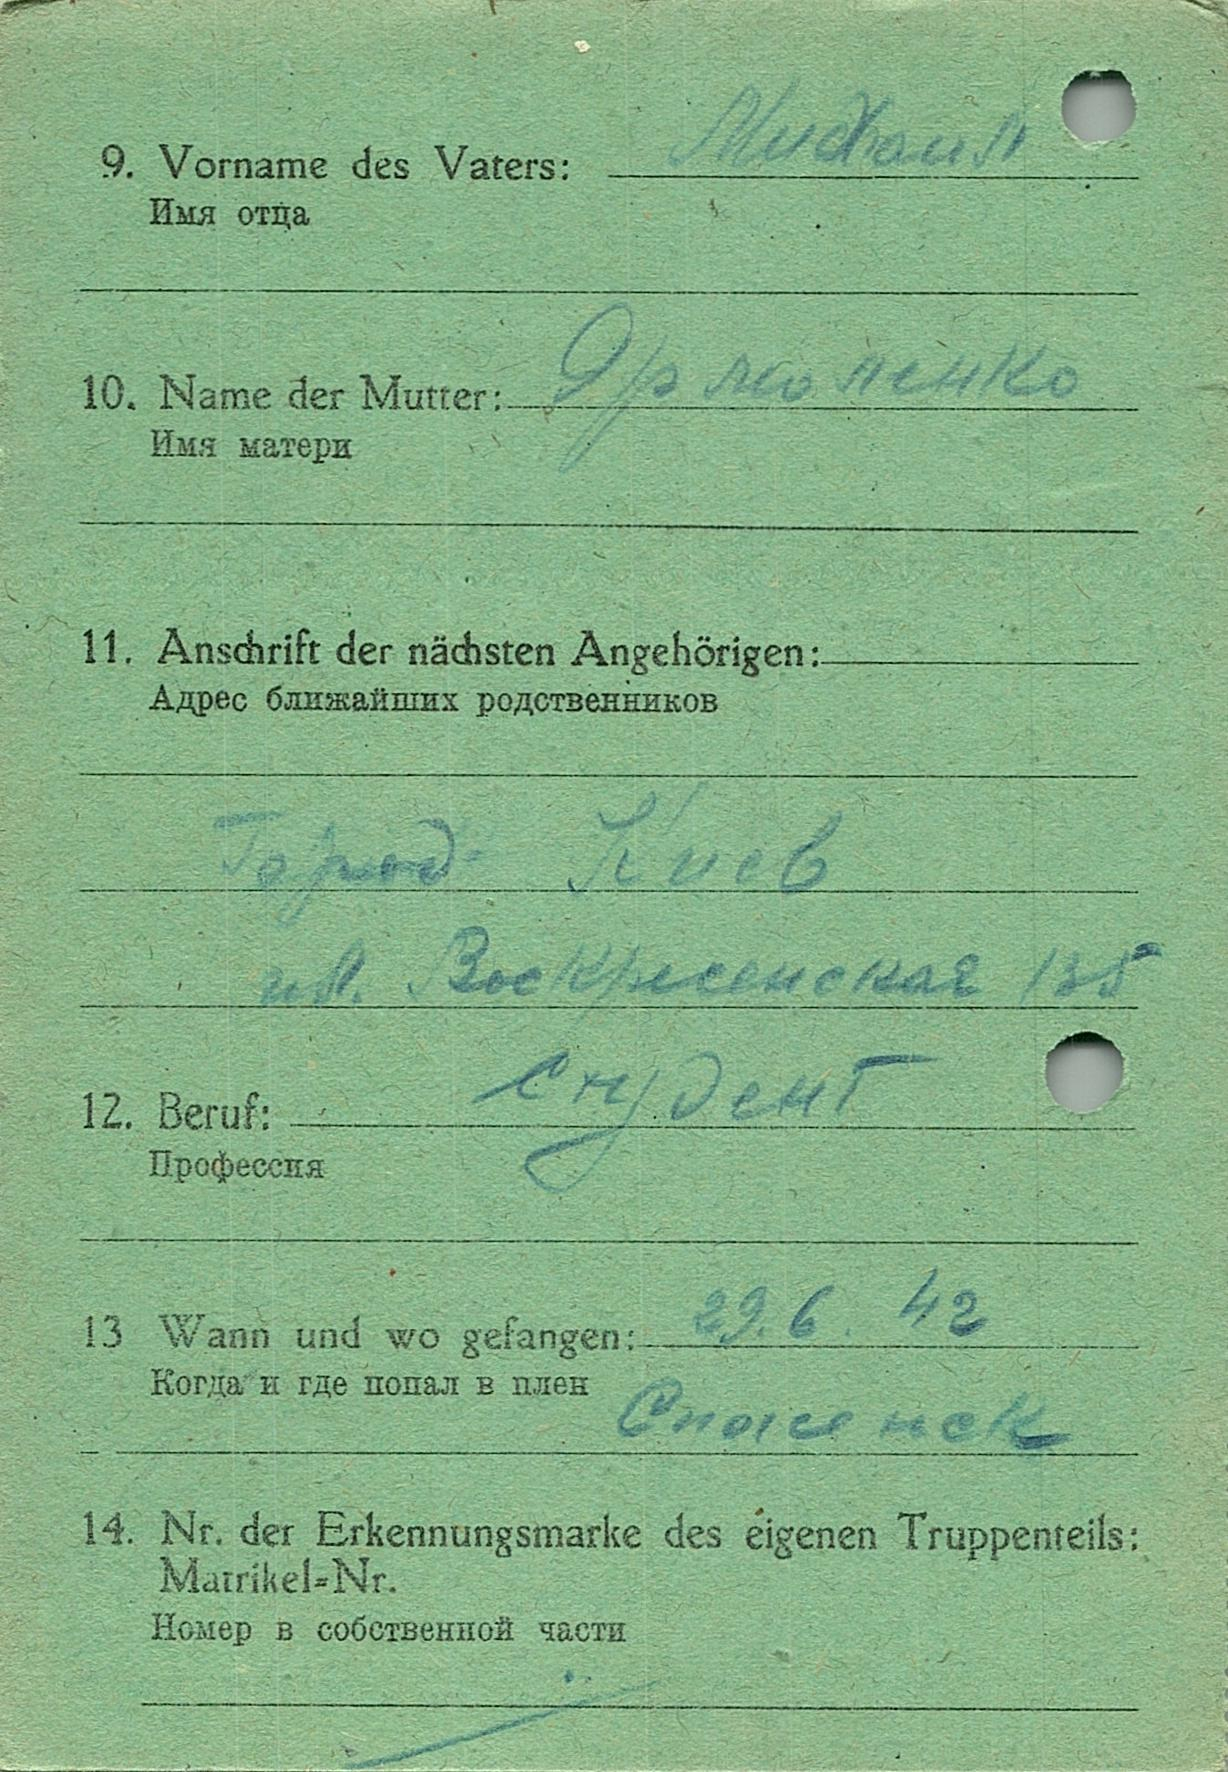 9. Vorname des Vaters: Михаил
Имя отца
10. Name der Mutter:
Имя матери
11. Anschrift der nächsten Angehörigen:
Адрес ближайших родственников
Город Киев
ул. Воскресенская 135
12. Beruf: Студент
Профессия
13 Wann und wo gefangen: 29.6.42
Когда и где попал в плен
14. Nr. der Erkennungsmarke des eigenen Truppenteils:
Matrikel=Nr.
Номер в собственной части